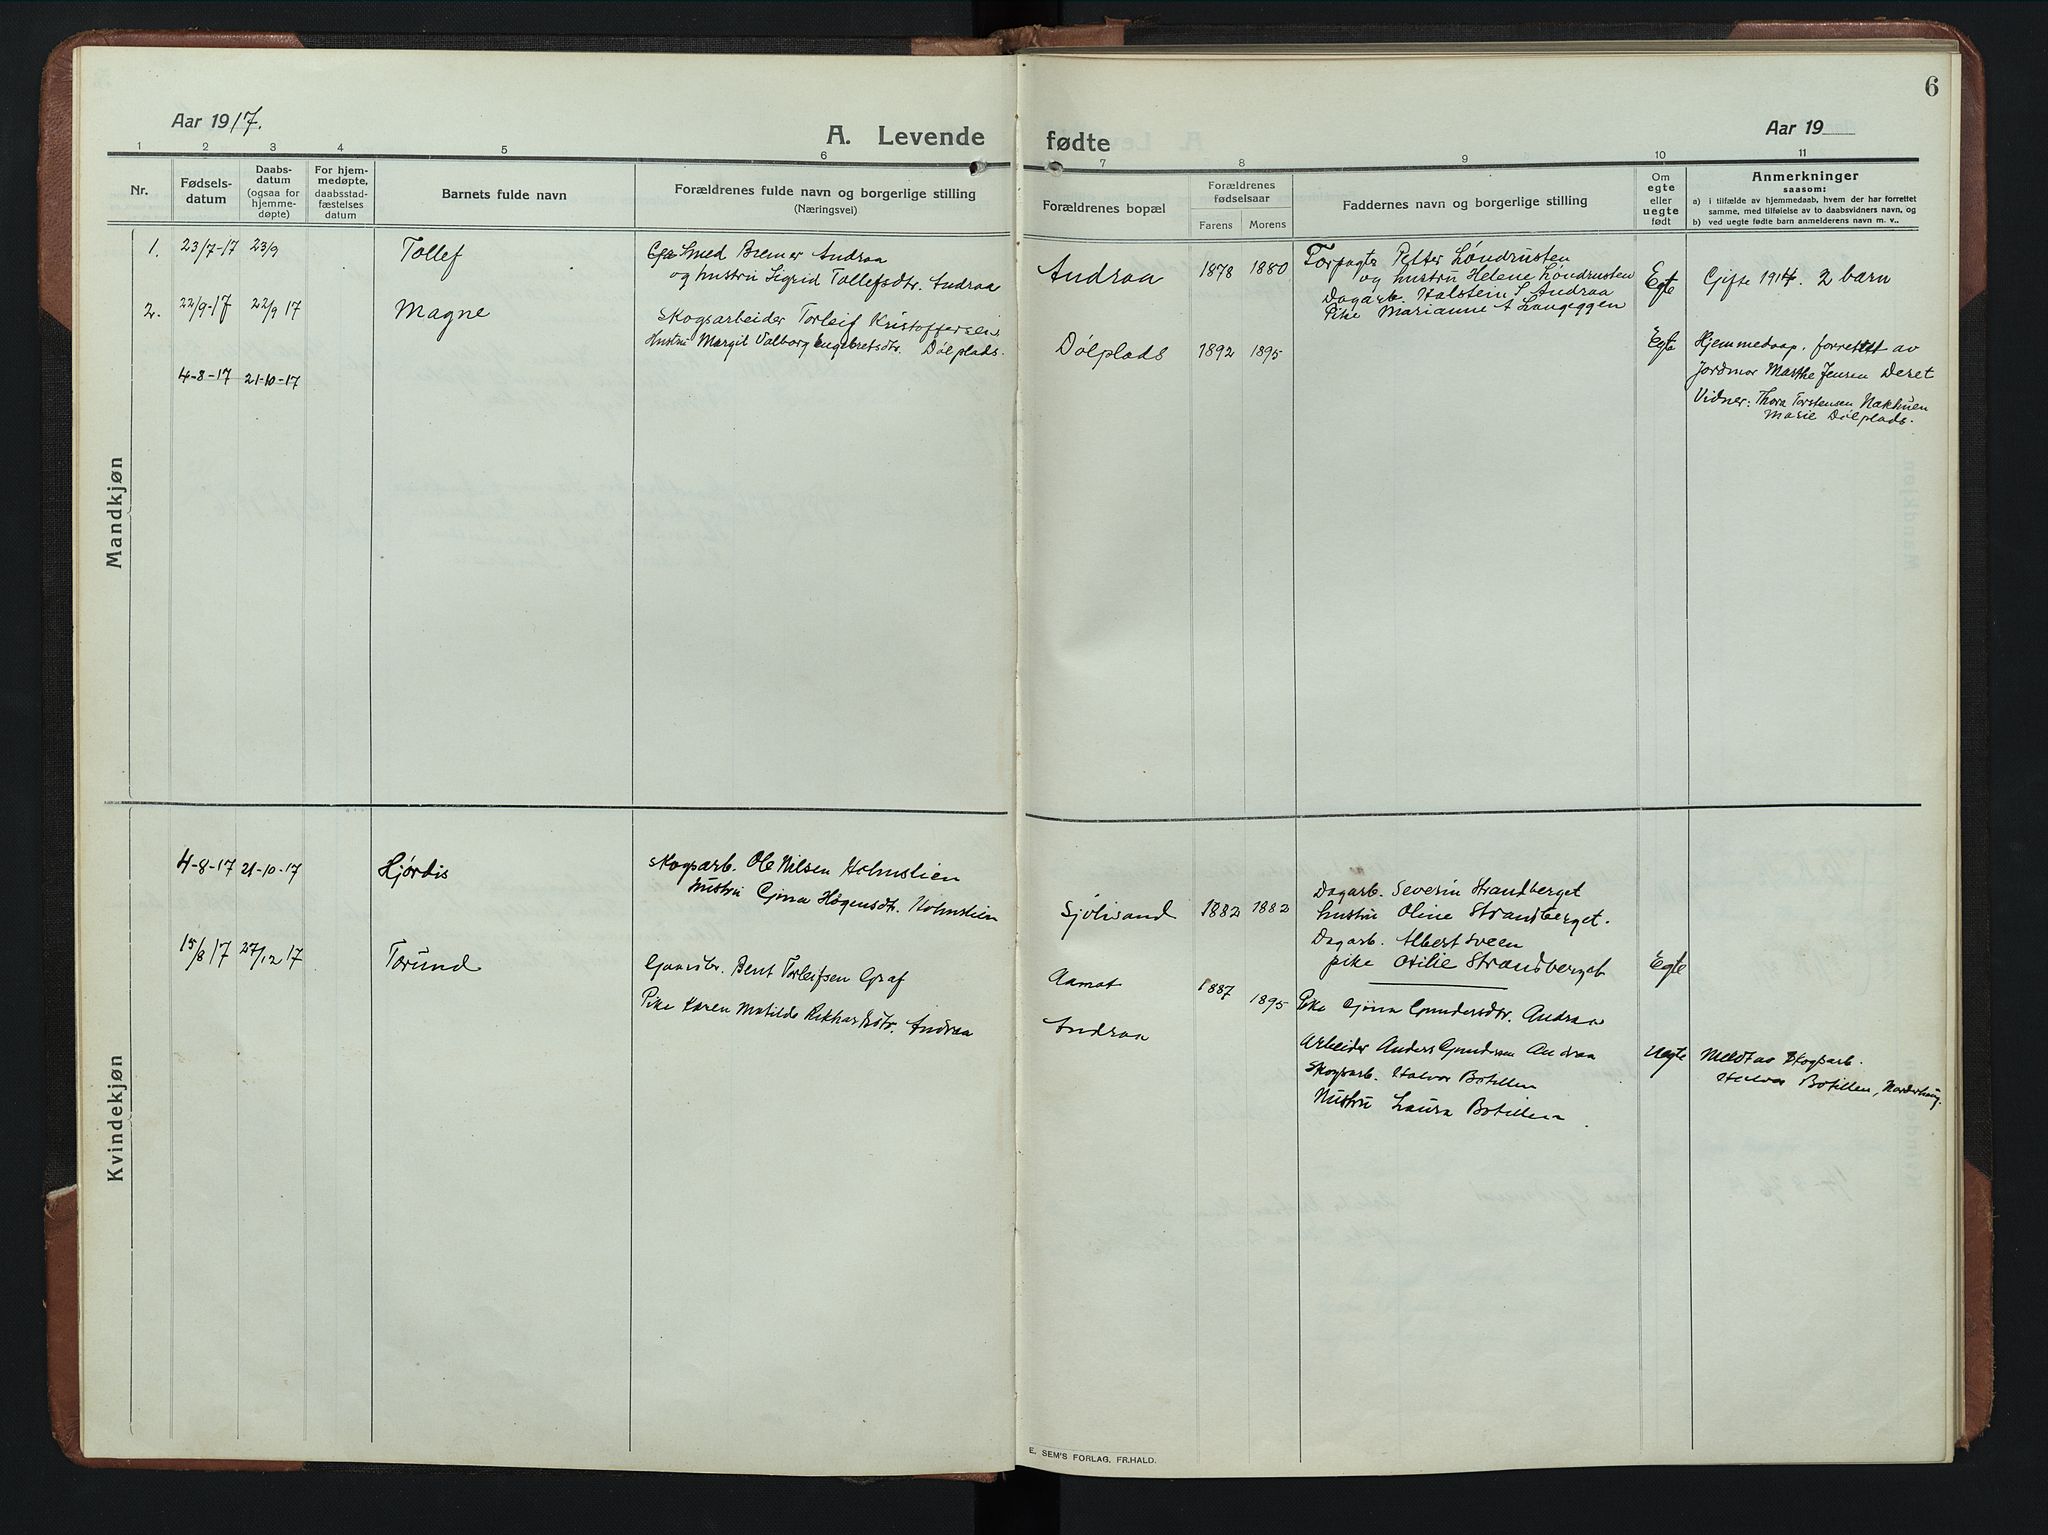 6
Aar 1917.
A. Levende fødte
Aar 19
1 2 3 4 5 6 7 8 9 10 11
Nr.
Fødsels-
datum
Daabs-
datum
(ogsaa for
hjemme-
døpte)
For hjem-
medøpte,
daabsstad-
fæstelses
datum
Barnets fulde navn
Forældrenes fulde navn og borgerlige stilling
(Næringsvei)
Forældrenes bopæl
Forældrenes
fødselsaar
Farens Morens
Faddernes navn og borgerlige stilling
Om
egte
eller
uegte
født
Anmerkninger
saasom:
a) i tilfælde av hjemmedaab, hvem der har forrettet
samme, med tilføielse av to daabsvidners navn, og
b) ved uegte født barn anmelderens navn m. v..
Mandkjøn
1. 23/7-17 23/9
Tollef
Smed Bremer Andraa
og hustru Sigrid Tollefsdtr. Andraa
Andraa
1878 1880
Forpagter Petter Løndrusten
og hustru Helene Løndrusten
Dagarb. Halstein S Andraa
Pike Marianne A Langeggen
Egte
Gifte 1914. 2 barn
2. 22/9-17 22/9 17
Magne
Skogsarbeider Torleif Kristoffersen
Hustru Margit Valborg Engebretsdtr. Dølplads.
Dølplads
1892 1895
Egte
Hjemmedaap. forrettet av
Jordmor Marthe Jensen Deset
Vidner: Thora Torstensen Nækhuen
Marie Dølplads.
4-8-17 21-10-17
Kvindekjøn
4-8-17 21-10-17
Hjørdis
Skogsarb. Ole Nilsen Holmslien
Hustru Gina Høgensdtr. Holmslien
Sjølisand
1882 1882
Dagarb. Severin Strandberget
hustru Oline Strandberget.
Dagarb. Albert Sveen
pike Otilie Strandberget
Egte
15/8 17 27/12 17
Torund
Gaardbr. Bent Torleifsen Graf
Pike Karen Matilde Rikhardsdtr. Andraa
Aamot
Andraa
1887 1895
Pike Gina Gundersdtr. Andraa
Arbeider Anders Gundersen Andraa
Skogsarb. Halvor Botillen
Hustru Laura Botillen
Uegte
Meldt av Skogsarb.
Halvor Botillen, Norderhaug.
E. SEM'S FORLAG, FR.HALD.